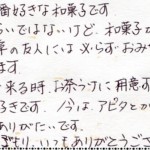 番好きな和菓子です
らいではないけど、和菓子が
の友人には必らずおみや
ます
来る時、お茶うけに用意す
好きです。今は、アピタとか
ありがたいです。
いつもありがとうござ